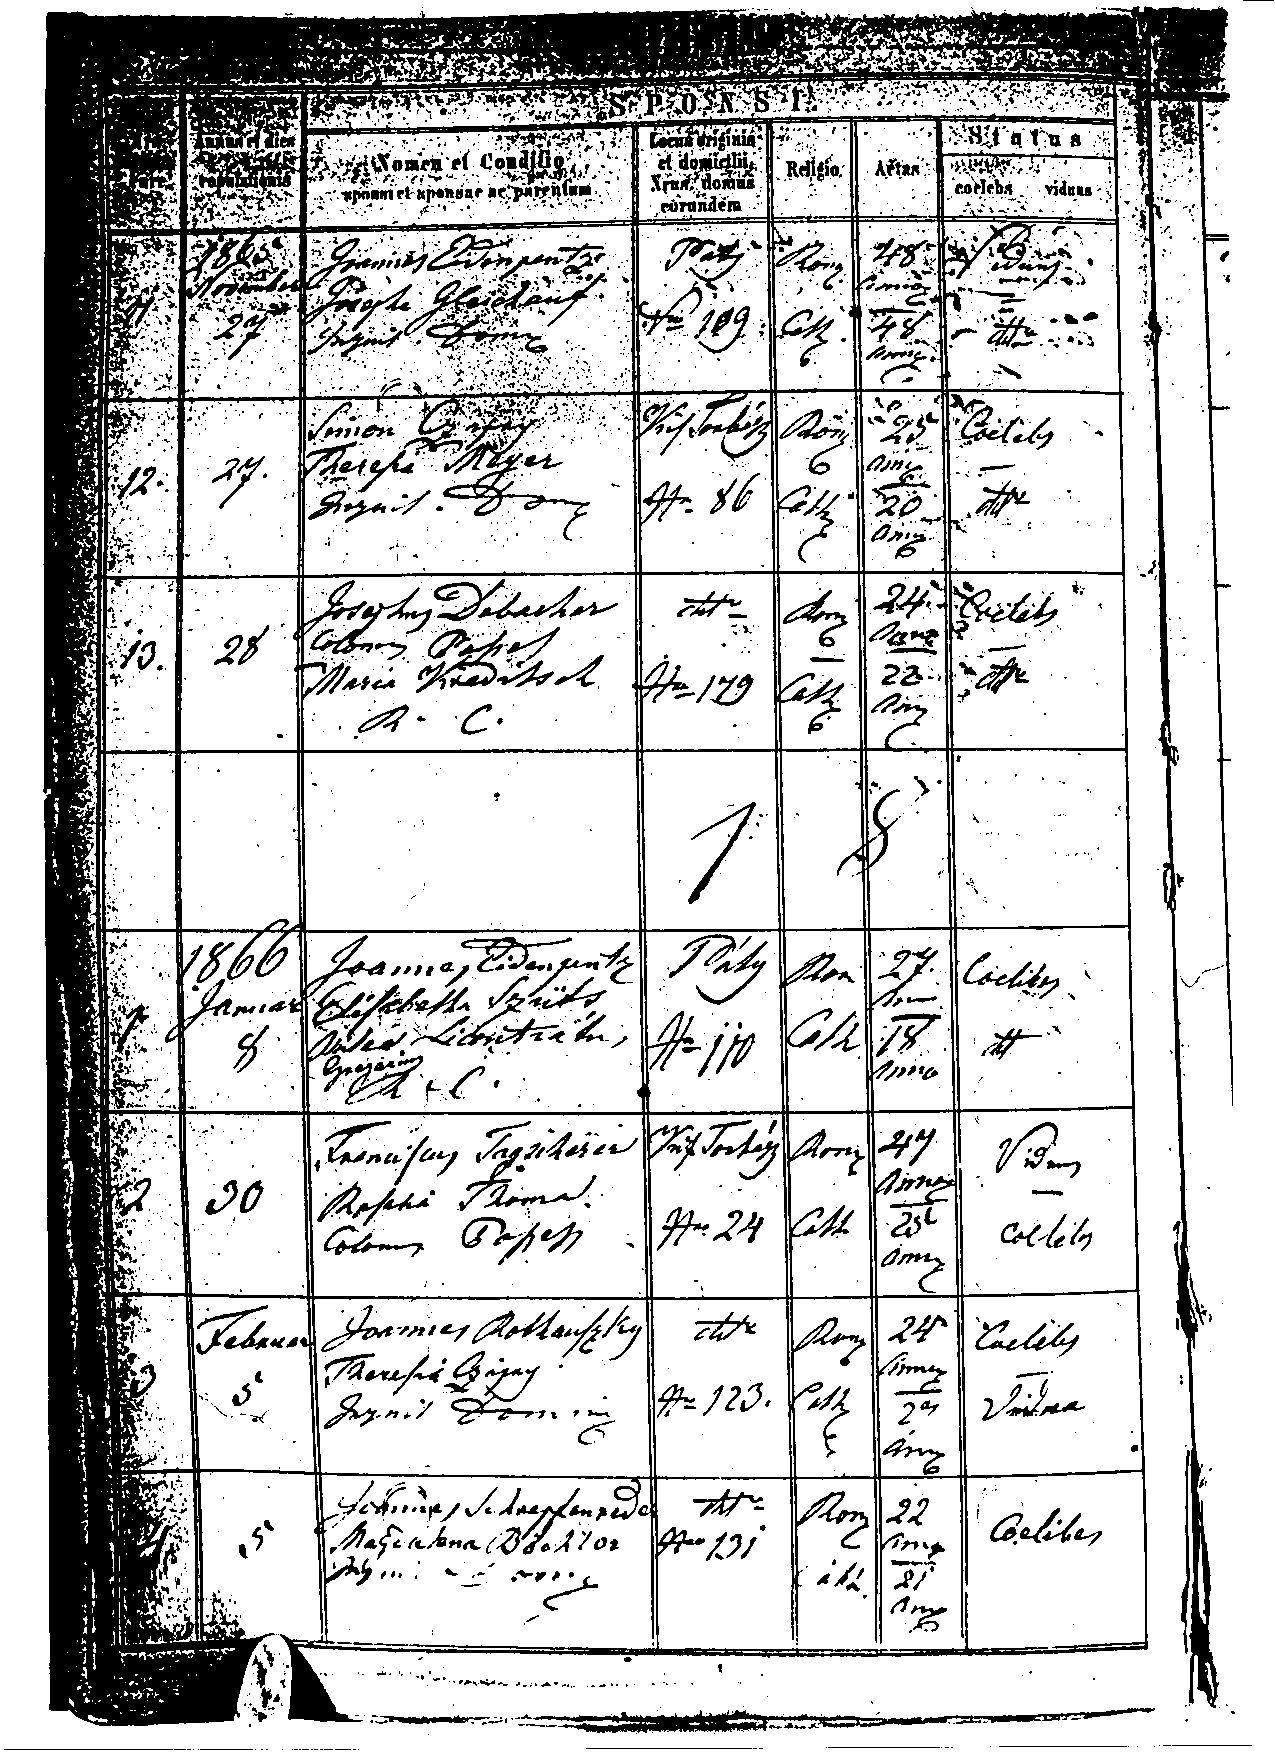 SPONSI.
Annus et dies
copulationis
Nomen et Conditio
sponsi et sponsae ac parentum
Locus originis
et domicilii,
Nrus. domus
eorundem
Religio
Aetas
Status
coelebs viduus
1865
November
27
Joannes Eidenpentz
Josepha Gleichauf
Inquil. Dom
Páty
Nro 109
Rom
Cath.
48
Anno
48
Anno
Viduus
dtto
12.
27.
Simon Czijay
Theresia Mayer
Inquil. Dom
Kis Torbágy
Nro 86
Rom
Cath
25
Anno
20
Anno
Coelebs
dtto
13.
28
Josephus Dobacher
Colonus Posses
Maria Kraditsch
R. C.
dtto
Nro 179
Rom
Cath
24
Anno
22
Anno
Coelebs
dtto
1866
Januar
8
Joannes Eidenpentz
Elisabetha Szüts
R. C.
Páty
Nro 110
Rom
Cath
27.
Anno
18
Anno
Coelebs
dtto
2
30
Franciscus Tagscherer
Rosalia Thoma
Colonus Posses
Kis Torbágy
Nro 24
Rom
Cath
47
Anno
25
Anno
Viduus
coelebs
3
Februar
5
Joannes Rothauszky
Theresia Czijay
Inquil Domin
dtto
Nro 123.
Rom
Cath
24
Anno
Anno
Coelebs
Vidua
4
5
Joannes Schrepfenreder
Magdalena Bechtor
dtto
Nro 131
Rom
Cath.
22
Anno
21
Anno
Coelebs